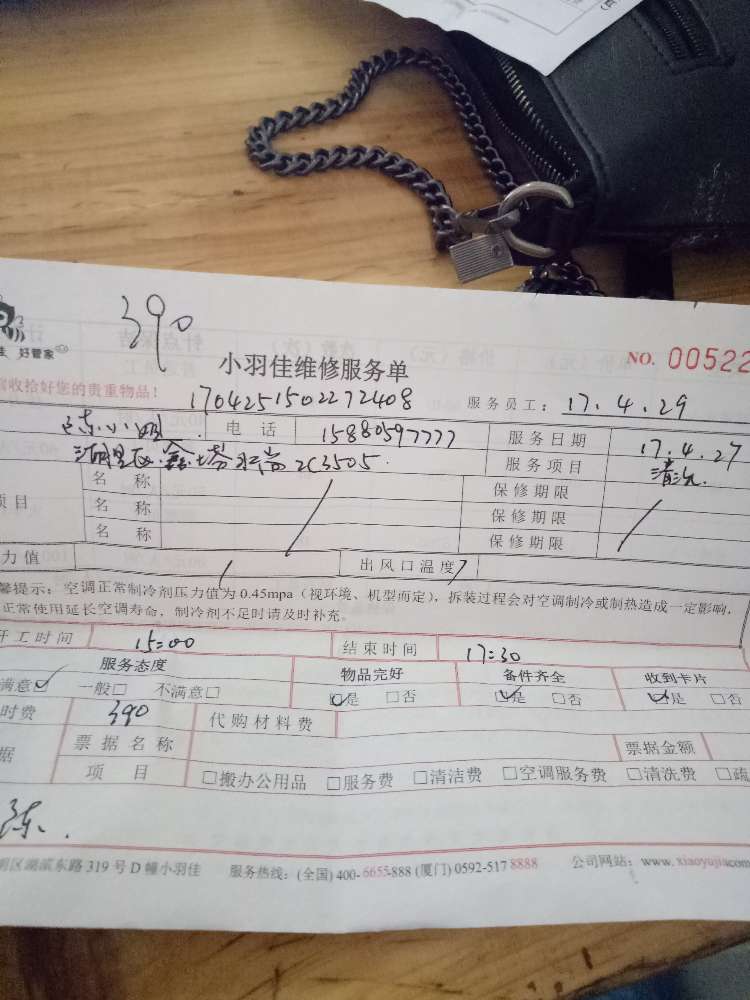 390
佳 好管家
小羽佳维修服务单
NO. 00522
收拾好您的贵重物品！
1704251502272408
服务员工： 17.4.29
陈小姐 电话 15880597777 服务日期 17.4.27
湖里区 2C3505. 服务项目 清洗.
项目 名称 保修期限
名称 保修期限
名称 保修期限
力值 出风口温度
馨提示：空调正常制冷剂压力值为 0.45mpa（视环境、机型而定），拆装过程会对空调制冷或制热造成一定影响，
正常使用延长空调寿命，制冷剂不足时请及时补充。
开工时间 15:00 结束时间 17:30
服务态度 物品完好 备件齐全 收到卡片
满意☑ 一般□ 不满意□ ☑是 □否 ☑是 □否 ☑是 □否
时费 390 代购材料费
据 票据名称 票据金额
项目 □搬办公用品 □服务费 □清洁费 □空调服务费 □清洗费 □疏
陈.
明区湖滨东路 319 号 D 幢小羽佳 服务热线：(全国) 400-6655-888 (厦门) 0592-517 8888 公司网站：www.xiaoyujia.com